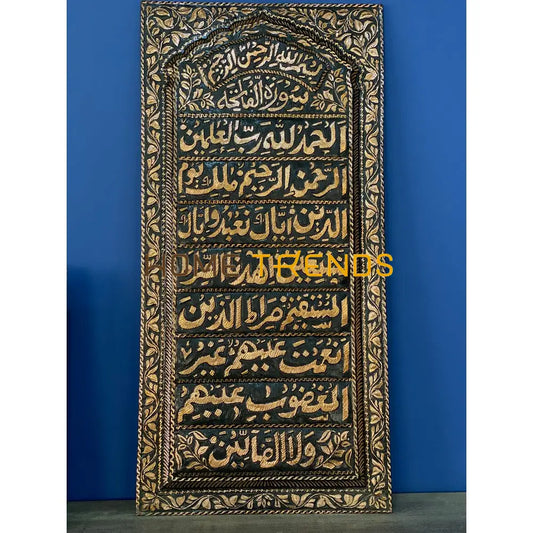 بسم الله الرحمن الرحيم
سورة الفاتحة
الحمد لله رب العلمين
الرحمن الرحيم ملك يوم
الدين اياك نعبد واياك
نستعين اهدنا الصراط
HOME TRENDS
المستقيم صراط الذين
انعمت عليهم غير
المغضوب عليهم
ولا الضالين